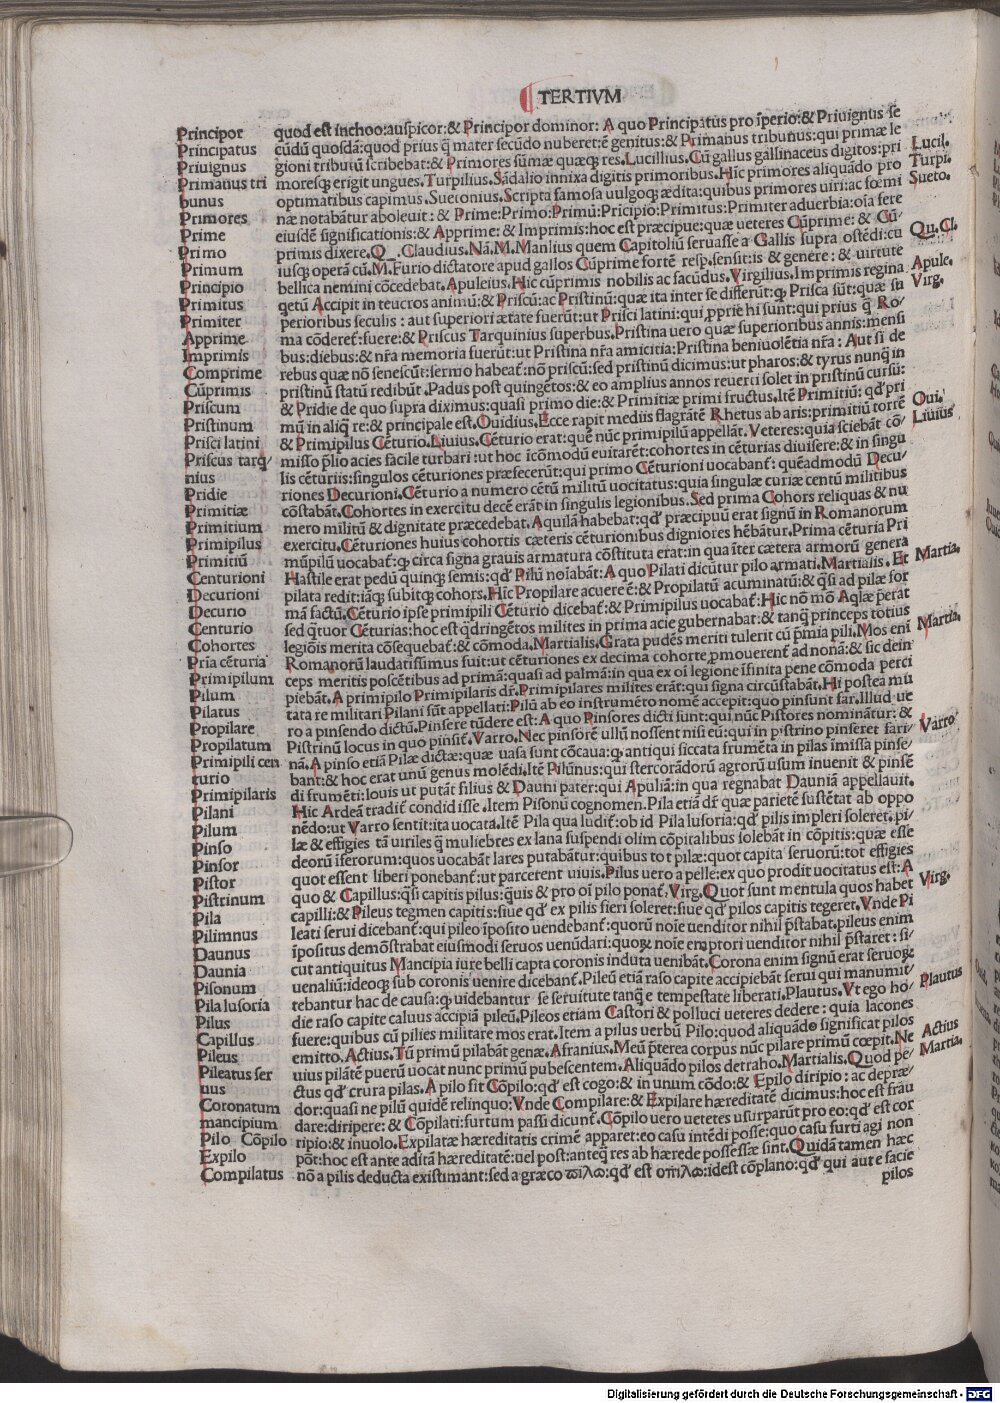 TERTIVM
Principor
Principatus
Priuignus
Primanus tri
bunus
Primores
Prime
Primo
Primum
Principio
Primitus
Primiter
Apprime
Imprimis
Comprime
Cūprimis
Priscum
Pristinum
Prisci latini
Priscus tarq/
nius
Pridie
Primitiæ
Primitium
Primipilus
Primitiū
Centurioni
Decurioni
Decurio
Centurio
Cohortes
Pria cēturia
Primipilum
Pilum
Pilatus
Propilare
Propilatum
Primipili cen
turio
Primipilaris
Pilani
Pilum
Pinso
Pinsor
Pistor
Pistrinum
Pila
Pilimnus
Daunus
Daunia
Pisonum
Pila lusoria
Pilus
Capillus
Pileus
Pileatus ser
uus
Coronatum
mancipium
Pilo Cōpilo
Expilo
Compilatus
quod est inchoo:auspicor:& Principor dominor: A quo Principatus pro īperio:& Priuignus se
cūdū quosdā:quod prius q̄ mater secūdo nuberet:ē genitus:& Primanus tribunus:qui primæ le
gioni tributū scribebat:& Primores sūmæ quæq; res.Lucillius.Cū gallus gallinaceus digitos:pri
moresq; erigit ungues.Turpilius.Sādalio innixa digitis primoribus.Hīc primores aliquādo pro
optimatibus capimus.Suetonius.Scripta famosa uulgoq; ædita:quibus primores uiri:ac fœmi
næ notabātur aboleuit: & Prime:Primo:Primū:Pricipio:Primitus:Primiter aduerbia:oīa fere
eiusdē significationis:& Apprime:& Imprimis:hoc est præcipue:quæ ueteres Cūprime: & Cū/
primis dixere.Q_.Claudius.Nā.M.Manlius quem Capitoliū seruasse a Gallis supra ostēdi:cu
iusq; operā cū.M.Furio dictatore apud gallos Cūprime fortē resp.sensit:is & genere: & uirtute
bellica nemini cōcedebat.Apuleius.Hic cūprimis nobilis ac facūdus.Virgilius.Imprimis regina
qetū Accipit in teucros animū:& Priscū:ac Pristinū:quæ ita inter se differūt:q; Prisca sūt:quæ su
perioribus seculis : aut superiori ætate fuerūt:ut Prisci latini:qui ꝓprie hi sunt:qui prius q̄ Ro/
ma cōderet̄:fuere:& Priscus Tarquinius superbus.Pristina uero quæ superioribus annis:mensi
bus:diebus:& nr̄a memoria fuerūt:ut Pristina nr̄a amicitia:Pristina beniuolētia nr̄a: Aut si de
rebus quæ nō senescūt:sermo habeat̄:nō priscū:sed pristinū dicimus:ut pharos:& tyrus nunq̄ in
pristinū statū redibūt.Padus post quingētos:& eo amplius annos reuerti solet in pristinū cursū:
& Pridie de quo supra diximus:quasi primo die:& Primitiæ primi fructus.Itē Primitiū: qd̄ pri
mū in aliq̄ re:& principale est.Ouidius.Ecce rapit mediis flagrātē Rhetus ab aris:primitiū torrē
& Primipilus Cēturio.Liuius.Cēturio erat:quē nūc primipilū appellāt.Veteres:quia sciebāt cō/
misso p̄lio acies facile turbari :ut hoc īcōmodū euitarēt:cohortes in cēturias diuisere:& in singu
lis cēturiis:singulos cēturiones præfecerūt:qui primo Cēturioni uocabant̄: quēadmodū Decu/
riones Decurioni.Cēturio a numero cētū militū uocitatus:quia singulæ curiæ centū militibus
cōstabāt.Cohortes in exercitu decē erāt in singulis legionibus.Sed prima Cohors reliquas & nu
mero militū & dignitate præcedebat.Aquilā habebat:qd̄ præcipuū erat signū in Romanorum
exercitu.Cēturiones huius cohortis cæteris cēturionibus digniores hēbātur.Prima cēturia Pri
mūpilū uocabat̄:q; circa signa grauis armatura cōstituta erat:in qua īter cætera armorū genera
Hastile erat pedū quinq; semis:qd̄ Pilū noīabāt:A quo Pilati dicūtur pilo armati.Martialis.Et
pilata redit:iāq; subitq; cohors.Hīc Propilare acuere ē:& Propilatū acuminatū:& q̄si ad pilæ for
mā factū.Cēturio ipse primipili Cēturio dicebat̄:& Primipilus uocabat̄:Hic nō mō Aqlæ p̄erat
sed q̄tuor Cēturias:hoc est q̄dringētos milites in prima acie gubernabat:& tanq̄ princeps totius
legiōis merita cōsequebat̄:& cōmoda.Martialis.Grata pudēs meriti tulerit cū p̄mia pili.Mos enī
Romanorū laudatissimus fuit:ut cēturiones ex decima cohorte ꝓmouerent̄ ad nonā:& sic dein
ceps meritis poscētibus ad primā:quasi ad palmā:in qua ex oī legione īfinita pene cōmoda perci
piebāt.A primipilo Primipilaris dr̄.Primipilares milites erāt:qui signa circūstabāt.Hi postea mu
tata re militari Pilani sūnt appellati:Pilū ab eo instrumēto nomē accepit:quo pinsunt far.Illud ue
ro a pinsendo dictū.Pinsere tūdere est:A quo Pinsores dicti sunt:qui nūc Pistores nominātur: &
Pistrinū locus in quo pinsit̄.Varro.Nec pinsorē ullū nossent nisi eū:qui in pistrino pinseret fari/
nā.A pinso etiā Pilæ dictæ:quæ uasa sunt cōcaua:q; antiqui siccata frumēta in pilas imissa pinse/
bant:& hoc erat unū genus molēdi.Itē Pilūnus:qui stercorādorū agrorū usum inuenit & pinsē
di frumēti:louis ut putāt filius & Dauni pater:qui Apuliā:in qua regnabat Dauniā appellauit.
Hic Ardeā tradit̄ condid isse.Item Pisonū cognomen.Pila etiā dr̄ quæ parietē sustētat ab oppo
nēdo:ut Varro sentit:ita uocata.Itē Pila qua ludit̄:ob id Pila lusoria:qd̄ pilis impleri soleret.pi/
læ & effigies tā uiriles q̄ muliebres ex lana suspendi olim cōpitalibus solebāt in cōpitis:quæ esse
deorū īferorum:quos uocabāt lares putabātur:quibus tot pilæ:quot capita seruorū:tot effigies
quot essent liberi ponebant̄:ut parcerent uiuis.Pilus uero a pelle:ex quo prodit uocitatus est:A
quo & Capillus:q̄si capitis pilus:q̄uis & pro oī pilo ponat̄.Virg.Quot sunt mentula quos habet
capilli:& Pileus tegmen capitis:siue qd̄ ex pilis fieri soleret:siue qd̄ pilos capitis tegeret.Vnde Pi
leati serui dicebant̄:qui pileo īposito uendebant̄:quorū noīe uenditor nihil p̄stabat.pileus enim
īpositus demōstrabat eiusmodi seruos uenūdari:quoꝝ noīe emptori uenditor nihil p̄staret: si/
cut antiquitus Mancipia iure belli capta coronis induta uenibāt.Corona enim signū erat seruoꝝ
uenaliū:ideoq; sub coronis uenire dicebant̄.Pileū etiā raso capite accipiebāt serui qui manumit/
tebantur hac de causa:q; uidebantur se seruitute tanq̄ e tempestate liberati.Plautus.Vt ego ho/
die raso capite caluus accipiā pileū.Pileos etiam Castori & polluci ueteres dedere : quia lacones
fuere:quibus cū pilies militare mos erat.Item a pilus uerbū Pilo:quod aliquādo significat pilos
emitto.Actius.Tū primū pilabāt genæ.Afranius.Meū p̄terea corpus nūc pilare primū cœpit.Ne
uius pilātē puerū uocat nunc primū pubescentem.Aliquādo pilos detraho.Martialis.Quod pe/
ctus qd̄ crura pilas.A pilo fit Cōpilo:qd̄ est cogo:& in unum cōdo:& Epilo diripio: ac depræ/
dor:quasi ne pilū quidē relinquo:Vnde Compilare:& Expilare hæreditatē dicimus:hoc est frau
dare:diripere: & Cōpilati:furtum passi dicunt̄.Cōpilo uero uetetes usurparūt pro eo:qd̄ est cor
ripio:& inuolo.Expilatæ hæreditatis crimē apparet:eo casu intēdi posse:quo casu furti agi non
pōt:hoc est ante aditā hæreditatē:uel post:anteq̄ res ab hærede possessæ sint.Quidā tamen hæc
nō a pilis deducta existimant:sed a græco ϖιλω:qd̄ est οπιλω:idest cōplano:qd̄ qui aute facie
pilos
Lucil.
Turpi.
Sueto.
Qu.Cl.
Apule.
Virg.
Oui.
Liuius
Martia.
Martia.
Varro
Virg.
Plautus
Actius
Martia.
Digitalisierung gefördert durch die Deutsche Forschungsgemeinschaft - DFG